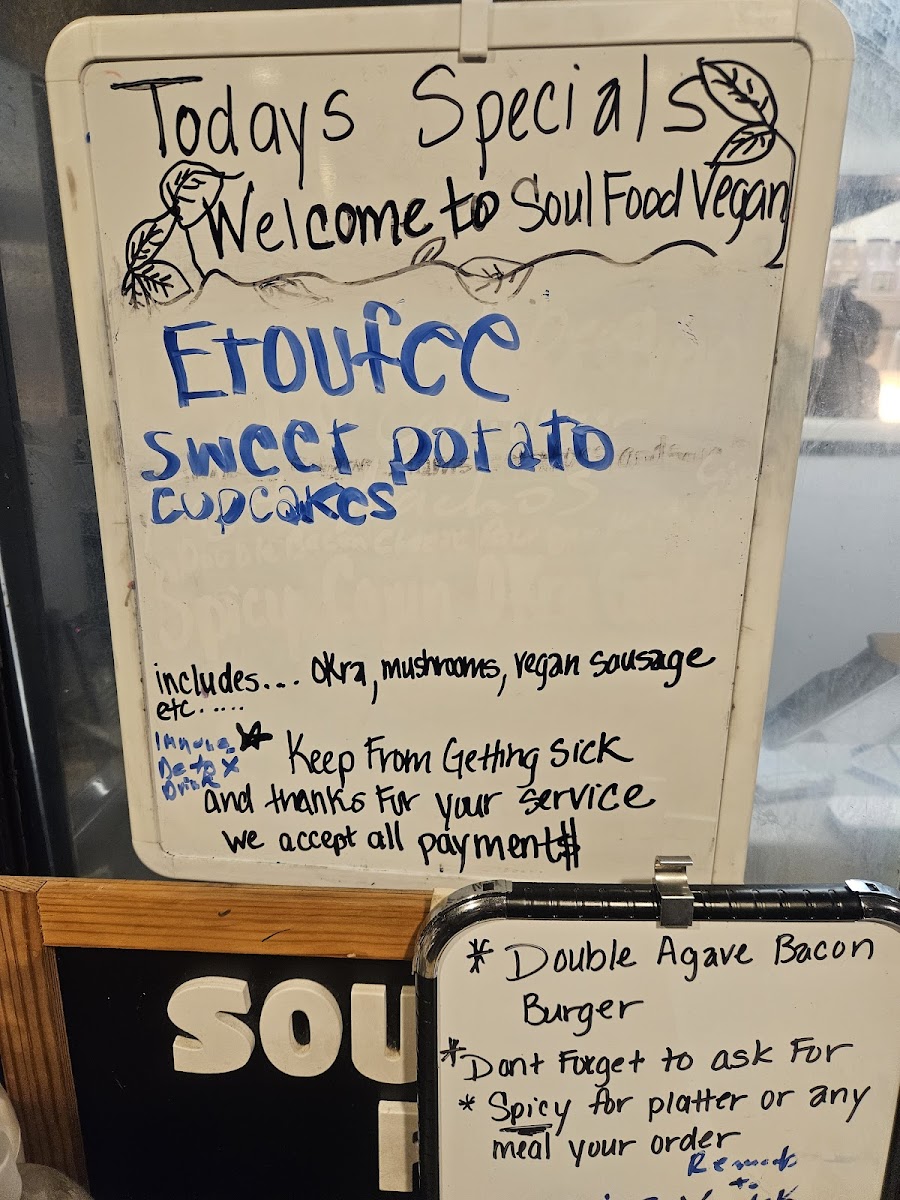 Todays Specials
Welcome to Soul Food Vegan
Etoufee
sweet potato
cupcakes
includes.... okra, mushrooms, vegan sausage
etc.....
Immune
Detox
Drink
Keep From Getting Sick
and thanks For your service
we accept all payment$
SOU
* Double Agave Bacon
Burger
* Dont Forget to ask For
* Spicy for platter or any
meal your order
to